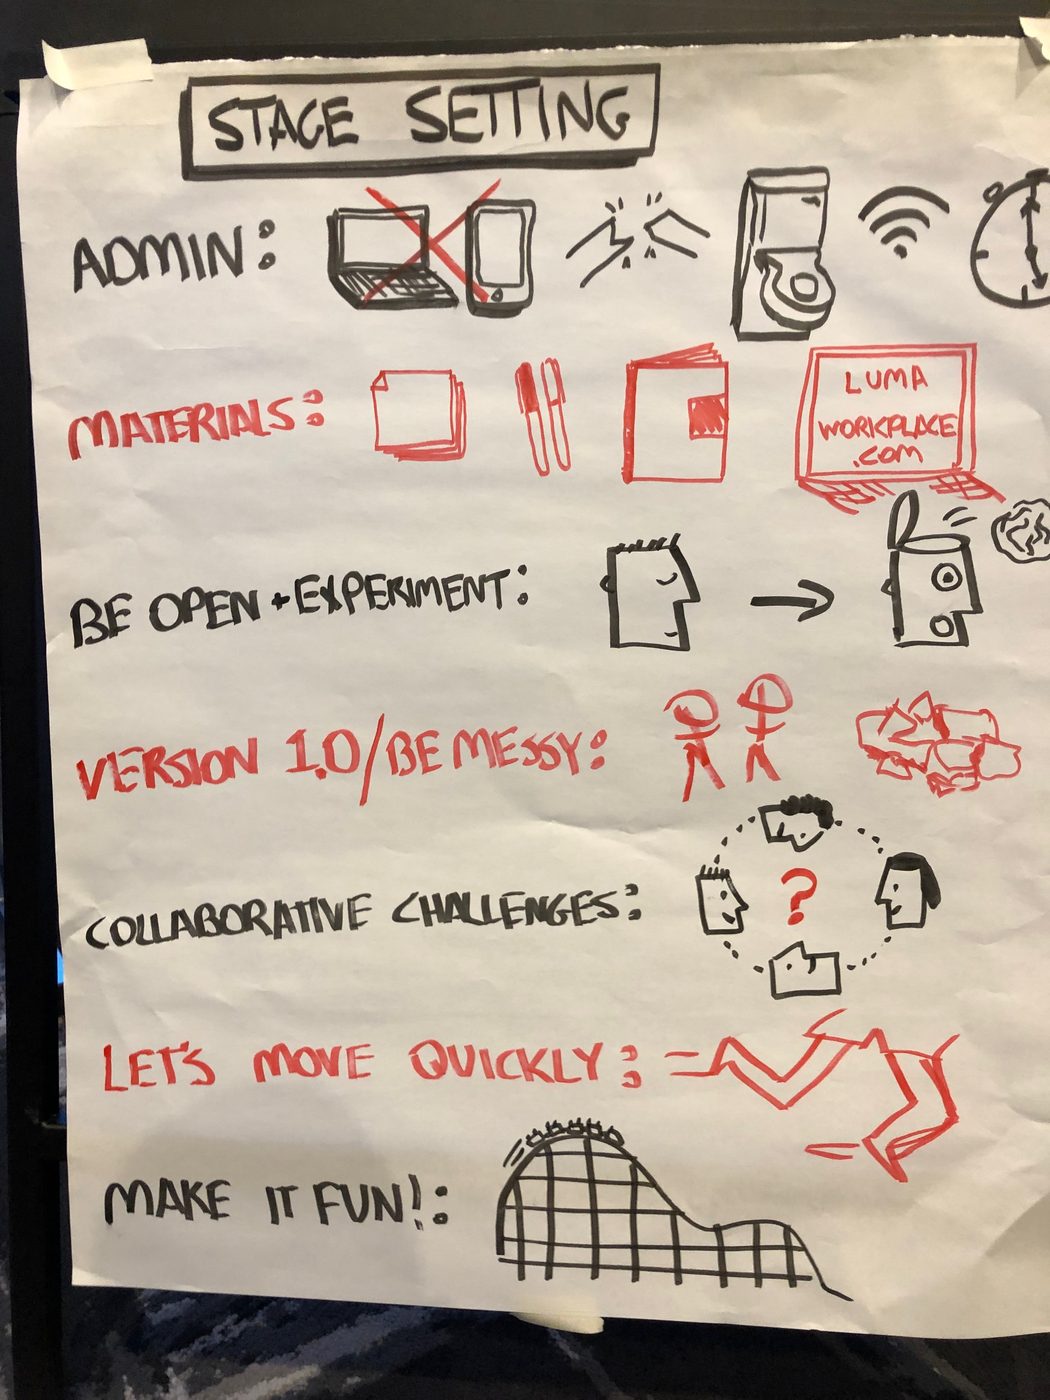 STAGE SETTING
ADMIN:
MATERIALS:
LUMA
WORKPLACE
.COM
BE OPEN + EXPERIMENT:
VERSION 1.0/BE MESSY:
COLLABORATIVE CHALLENGES:
?
LET'S MOVE QUICKLY:
MAKE IT FUN!: